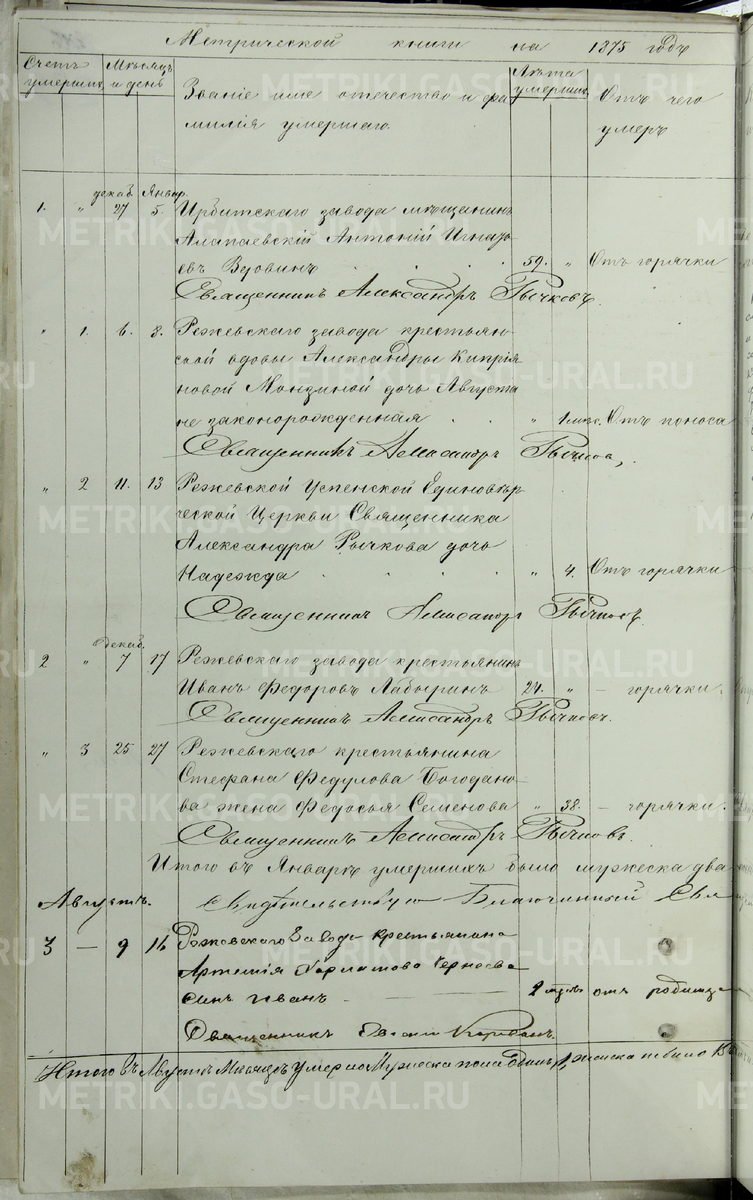 Метрической книги на 1875 годъ
Счетъ умершихъ Мѣсяцъ и день Званіе име отечество и фамилія умершаго. Лѣта умершихъ Отъ чего умеръ
декаб. Январ.
1. " 27 5. Ирбитскаго завода мѣщанинъ
Алапаевскій Антоній Игнать
евъ 59. " Отъ горячки
Священникъ Александръ Рычковъ.
" 1. 6. 8. Режевскаго завода крестьян-
ской вдовы Александры Кипрія
новой Монзиной дочь Августа
не законорожденная " 1 мѣс. Отъ поноса
Священникъ Александръ Рычковъ,
" 2 11. 13 Режевской Успенской Единовѣр
ческой Церкви Священника
Александра Рычкова дочь
Надежда " 4. Отъ горячки
Священникъ Александръ Рычковъ.
декаб.
2 " 7 17 Режевскаго завода крестьянинъ
Иванъ Федоровъ Лабыринъ 24. " – горячки.
Священникъ Александръ Рычковъ.
" 3 25 27 Режевскаго крестьянина
Стефана Федулова Богодано-
ва жена Федосья Семенова " 38. – горячки.
Священникъ Александръ Рычковъ.
Итого въ Январѣ умершихъ было мужеска два
Августъ. Свидѣтельствую Благочинный Свя
3 — 9 16 Режевскаго Завода крестьянина
Артемія
сынъ Иванъ — 2 отъ родимца
Священникъ
Итого въ Августѣ Мѣсяцѣ умерло Мужеска пола Одинъ 1, женска небыло
METRIKI.GASO-URAL.RU